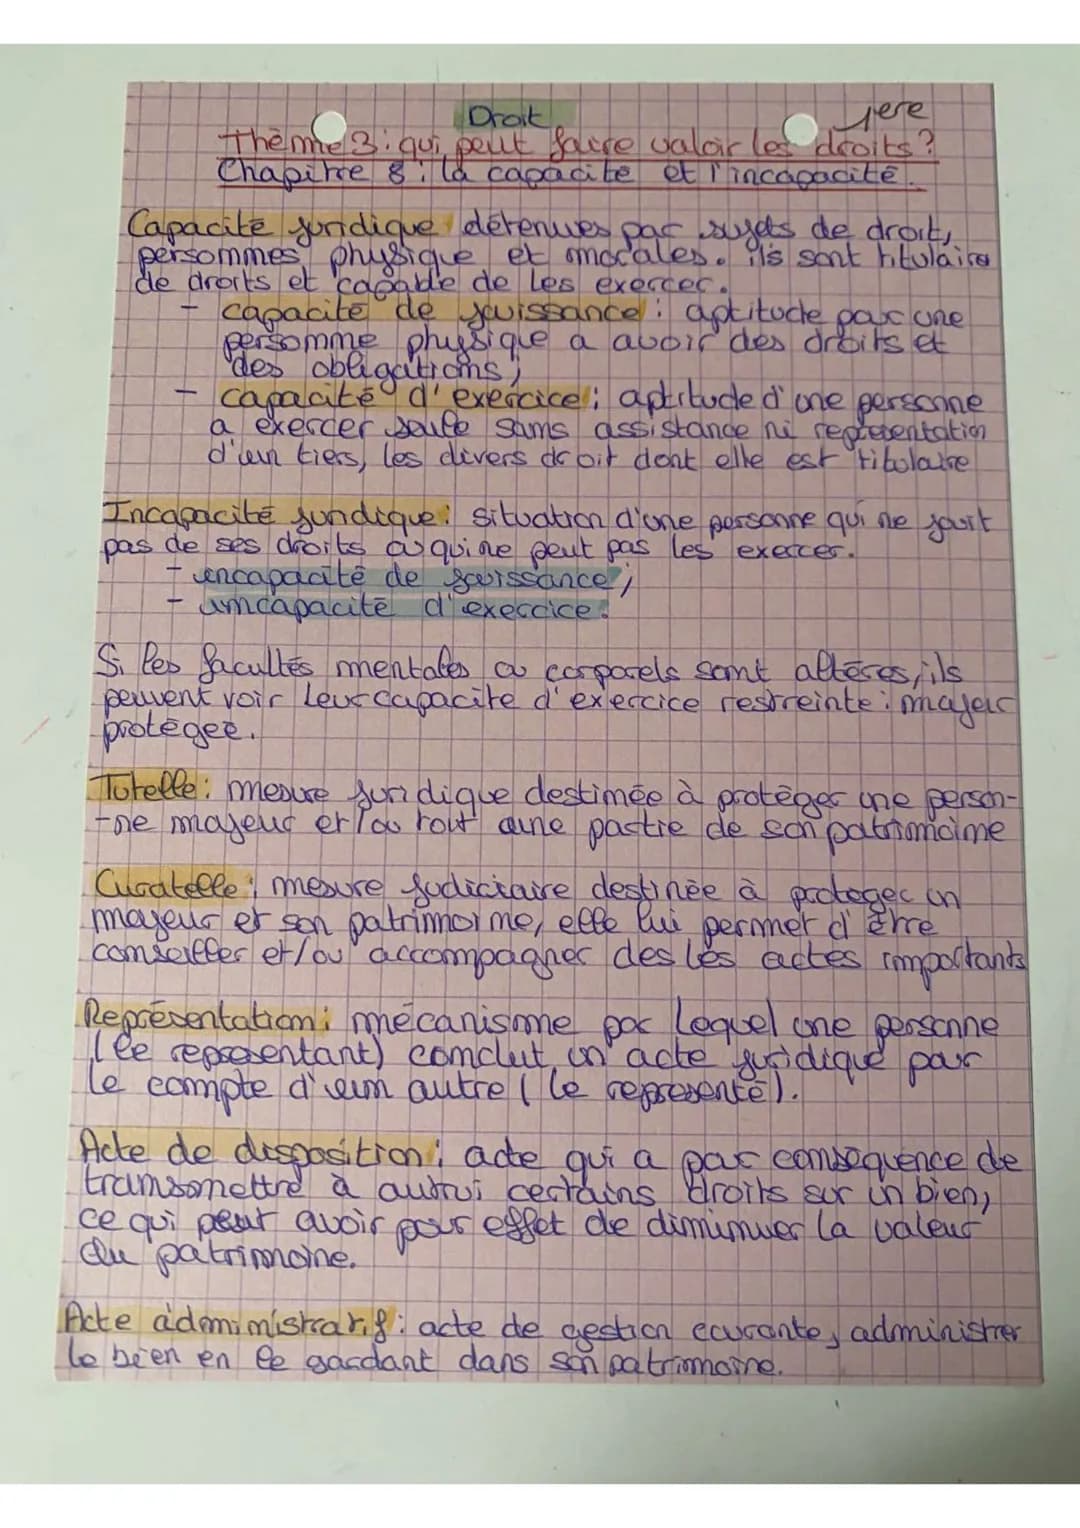 Droit
1ere
Thème 3 : qui peut faire valoir les droits ?
Chapitre 8 : la capacité et l'incapacité.
Capacité juridique détenues par sujets de droit,
personnes physique et morales. ils sont titulaire
de droits et capable de les exercer.
- capacité de jouissance : aptitude par une
personne physique a avoir des droits et
des obligations ;
- capacité d'exercice : aptitude d'une personne
a exercer seule sans assistance ni representation
d'un tiers, les divers droit dont elle est titulaire
Incapacité juridique : situation d'une personne qui ne jouit
pas de ses droits ou qui ne peut pas les exercer.
- incapacité de jouissance ;
- incapacité d'exercice.
Si les facultés mentales ou corporels sont altéres, ils
peuvent voir leur capacite d'exercice restreinte : majeur
protégée.
Tutelle : mesure juridique destinée à protéger une person-
-ne majeur et/ou tout d'une partie de son patrimoine
Curatelle : mesure judiciaire destinée à proteger un
majeur et son patrimoine, elle lui permet d'être
conseiller et/ou accompagner des les actes importants
Représentation : mécanisme par lequel une personne
(le representant) conclut un acte juridique par
le compte d'un autre (le representé).
Acte de disposition : acte qui a par consequence de
transmettre à autrui certains droits sur un bien,
ce qui peut avoir pour effet de diminuer la valeur
du patrimoine.
Acte administratif : acte de gestion courante, administrer
le bien en le gardant dans son patrimoine.